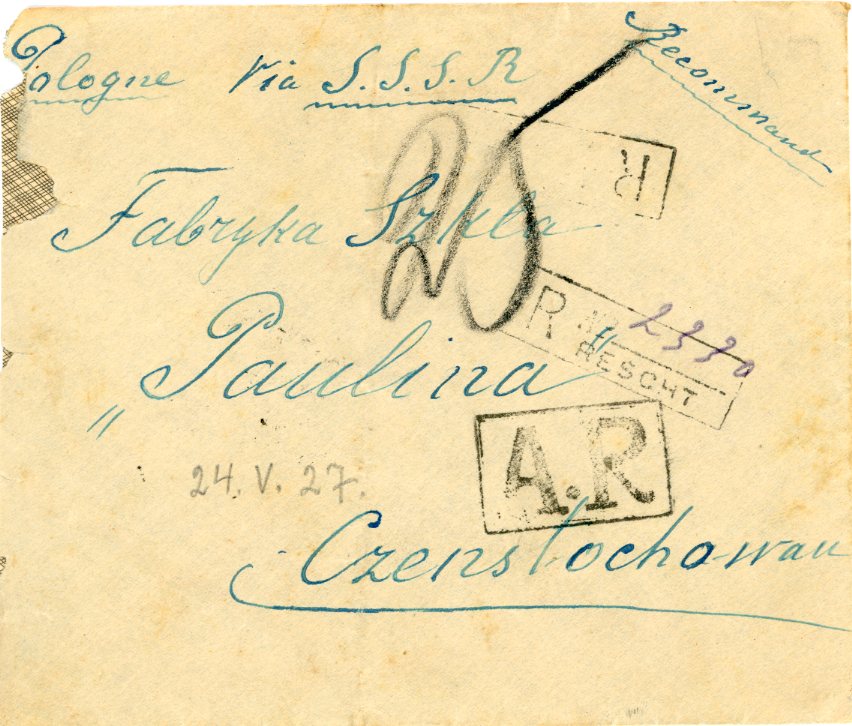 Pologne Via S.S.S.R
Recommand
R
Fabryka Szkła
25
R No 2330
RESCHT
„Paulina"
A.R
24.V.27.
Czenstochowau